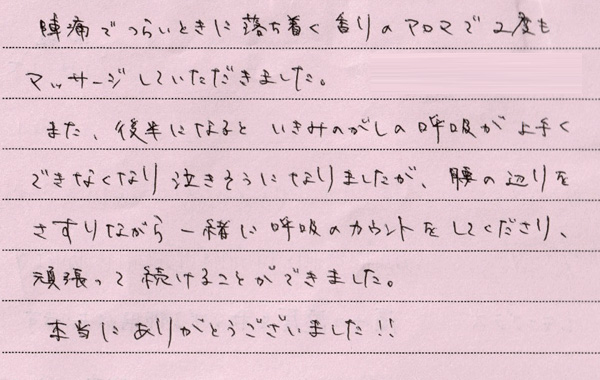 陣痛でつらいときに落ち着く香りのアロマで2度も
マッサージしていただきました。
また、後半になると いきみのがしの呼吸が上手く
できなくなり泣きそうになりましたが、腰の辺りを
さすりながら一緒に呼吸のカウントをしてくださり、
頑張って続けることができました。
本当にありがとうございました!!